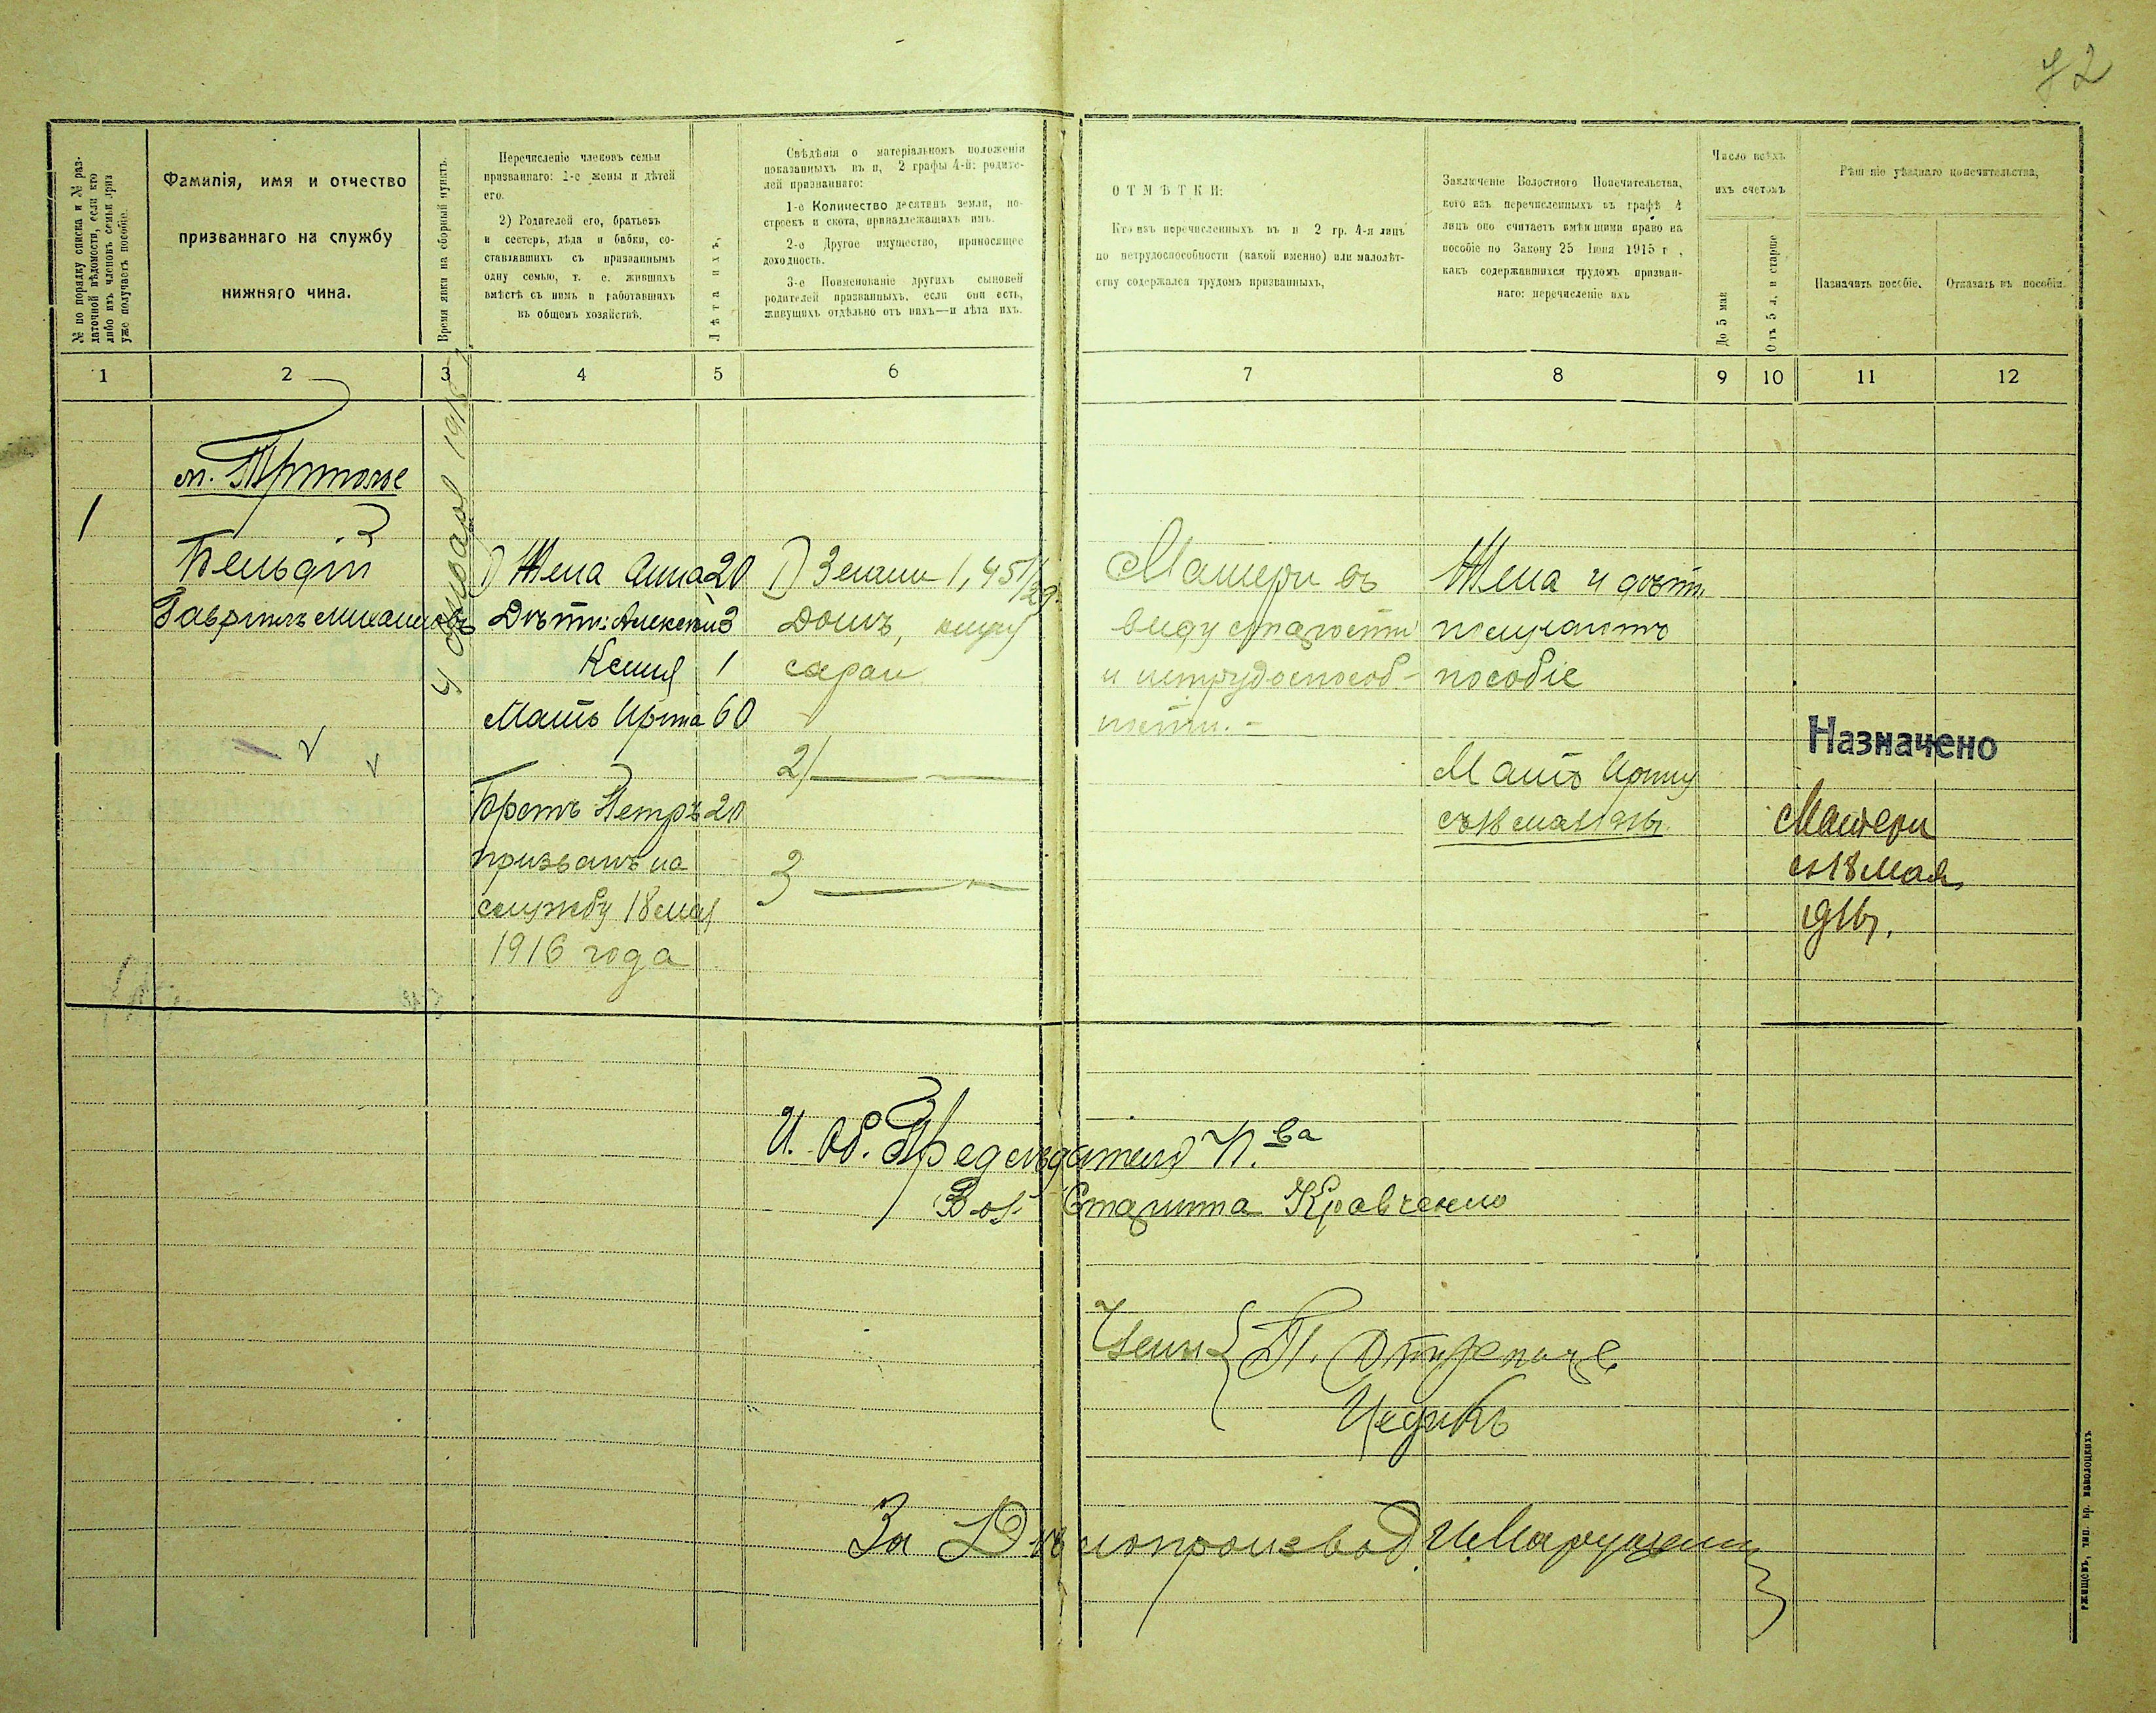 72
№ по порядку списка и № раз-
даточной вѣдомости, если кто
либо изъ членовъ семьи приз
уже получаетъ пособіе.
Фамилія, имя и отчество
призваннаго на службу
нижняго чина.
Время явки на сборный пунктъ.
Перечисленіе членовъ семьи
призваннаго: 1-е жены и дѣтей
его.
2) Родителей его, братьевъ
и сестеръ, дѣда и бабки, со-
ставлявшихъ съ призваннымъ
одну семью, т. е. жившихъ
вмѣстѣ съ нимъ и работавшихъ
въ общемъ хозяйствѣ.
Лѣта ихъ.
Свѣдѣнія о матеріальномъ положеніи
показанныхъ въ п, 2 графы 4-й: родите-
лей призваннаго:
1-е Количество десятинъ земли, по-
строекъ и скота, принадлежащихъ имъ.
2-е Другое имущество, приносящее
доходность.
3-е Поименованіе другихъ сыновей
родителей призванныхъ, если они есть,
живущихъ отдѣльно отъ нихъ—и лѣта ихъ.
ОТМѢТКИ:
Кто изъ перечисленныхъ въ п 2 гр. 4-я лицъ
по нетрудоспособности (какой именно) или малолѣт-
ству содержался трудомъ призванныхъ,
Заключеніе Волостного Попечительства,
кого изъ перечисленныхъ въ графѣ 4
лицъ оно считаетъ имѣющими право на
пособіе по Закону 25 Іюня 1915 г ,
какъ содержавшихся трудомъ призван-
наго: перечисленіе ихъ
Число всѣхъ
ихъ счетомъ
До 5 мая
Отъ 5 л. и старше
Рѣшеніе уѣзднаго попечительства,
Назначить пособіе.
Отказать въ пособіи.
1 2 3 4 5 6 7 8 9 10 11 12
м. Триполье
1
Бельдій
Гавріилъ Михаиловъ
1) Жена Анна 20
Дѣти: Алексѣй 3
Ксенія 1
Мать Ирина 60
Братъ Петръ 20
призванъ на
службу 18 мая
1916 года
1) Земли 1,45
Домъ,
сараи
2)
3
Матери въ
виду старости
и нетрудоспособ-
ности. -
Жена и дѣти
получаютъ
пособіе
Мать Ирину
съ 18 мая 1916 г.
Назначено
Матери
съ 18 мая
1916 г.
И. об. Предсѣдателя П.ва
Вол. Старшина Кравченко
Члены
За Дѣлопроизвод.